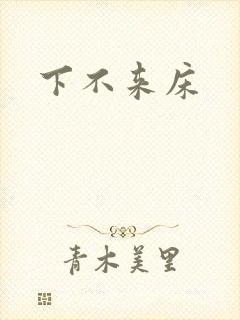 下不来床
青木美里